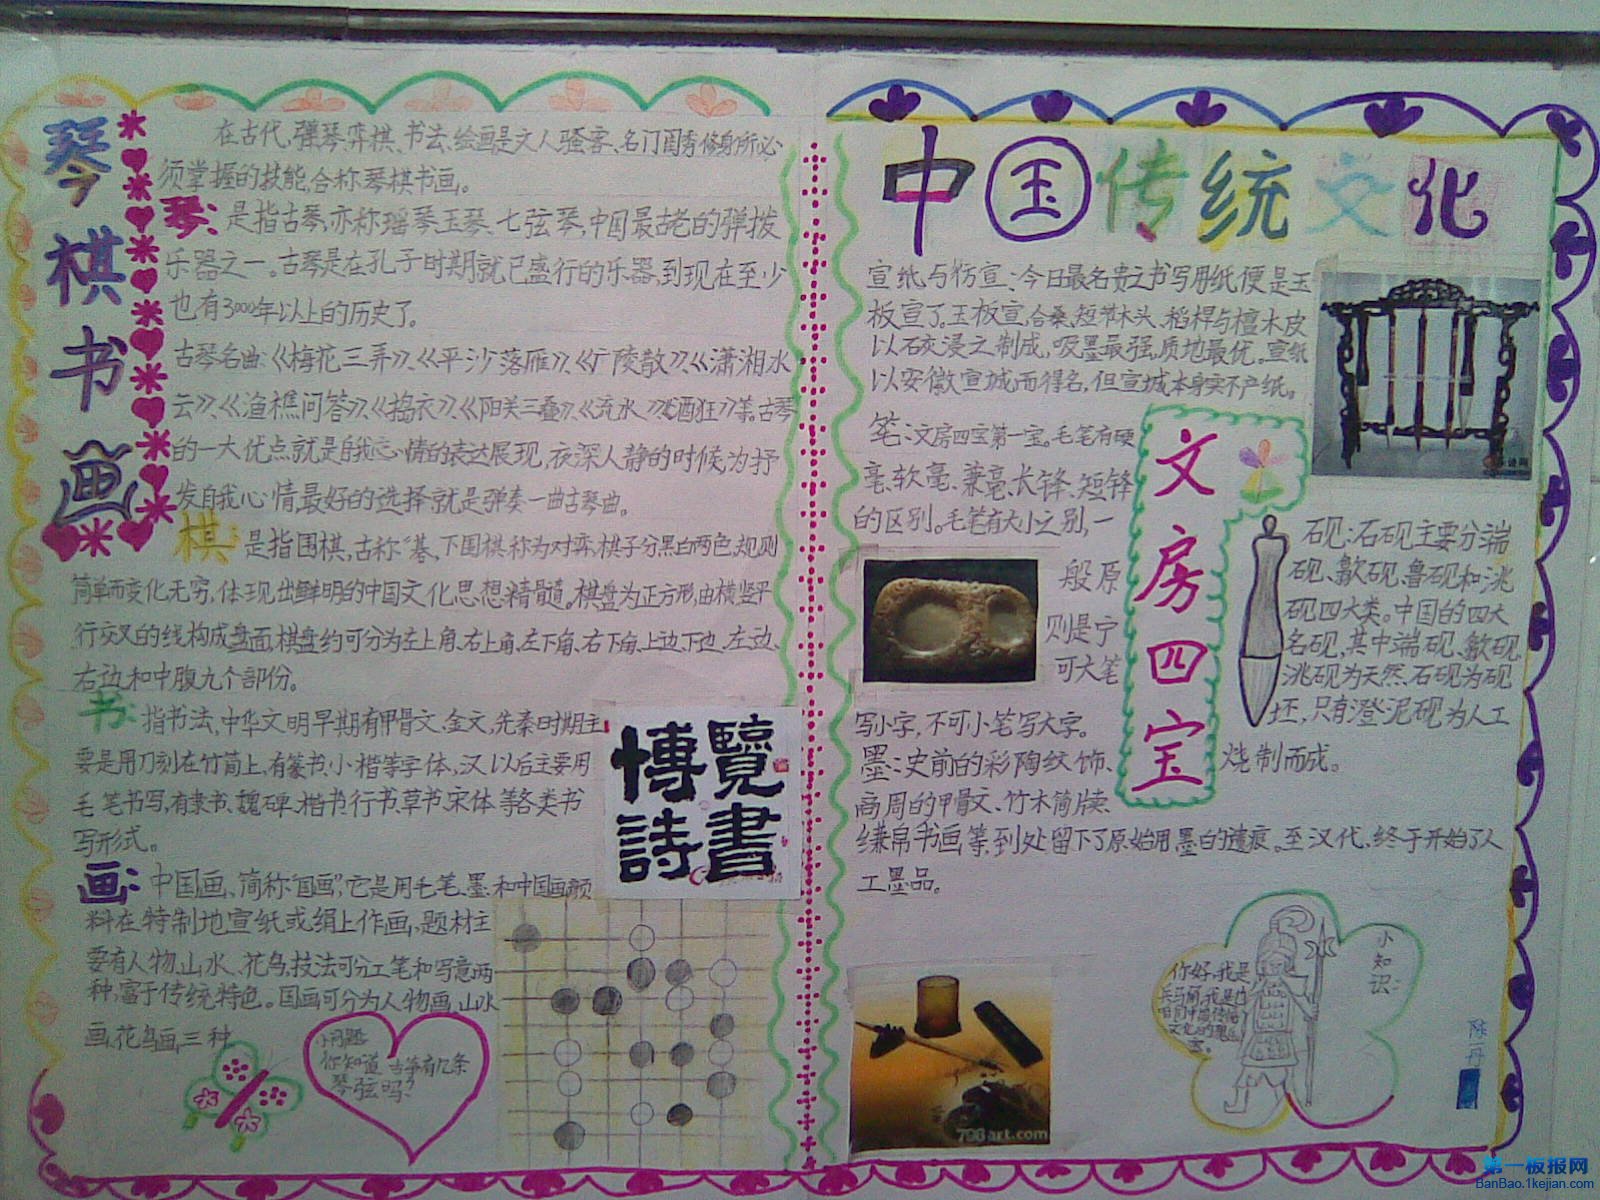 琴棋书画
在古代,弹琴、弈棋、书法、绘画是文人骚客、名门闺秀修身所必
须掌握的技能,合称琴棋书画。
琴:是指古琴,亦称瑶琴、玉琴、七弦琴,中国最古老的弹拨
乐器之一。古琴是在孔子时期就已盛行的乐器,到现在至少
也有3000年以上的历史了。
古琴名曲:《梅花三弄》、《平沙落雁》、《广陵散》、《潇湘水
云》、《渔樵问答》、《捣衣》、《阳关三叠》、《流水》《酒狂》等。古琴
的一大优点就是自我心情的表达展现,夜深人静的时候,为抒
发自我心情,最好的选择就是弹奏一曲古琴曲。
棋:是指围棋,古称“棊,下围棋称为对弈,棋子分黑白两色,规则
简单而变化无穷,体现出鲜明的中国文化思想精髓。棋盘为正方形,由横竖平
行交叉的线构成盘面,棋盘约可分为左上角、右上角、左下角、右下角、上边、下边、左边、
右边和中腹九个部份。
书:指书法,中华文明早期有甲骨文、金文,先秦时期主
要是用刀刻在竹简上,有篆书、小楷等字体,汉以后主要用
毛笔书写,有隶书、魏碑、楷书、行书、草书、宋体等各类书
写形式。
博覽
詩書
画:中国画、简称“国画”,它是用毛笔、墨和中国画颜
料在特制地宣纸或绢上作画,题材主
要有人物、山水、花鸟,技法可分工笔和写意两
种,富于传统特色。国画可分为人物画,山水
画,花鸟画,三种
小问题:
你知道古筝有几条
琴弦吗?
中国传统文化
宣纸与仿宣:今日最名贵之书写用纸便是玉
板宣了。玉板宣,合桑、短节木头、稻杆与檀木皮
以石灰浸之制成,吸墨最强,质地最优。宣纸
以安徽宣城而得名,但宣城本身实不产纸。
文房四宝
笔:文房四宝第一宝。毛笔有硬
毫、软毫、兼毫、长锋、短锋
的区别。毛笔有大小之别,一
般原
则是宁
可大笔
写小字,不可小笔写大字。
墨:史前的彩陶纹饰、
商周的甲骨文、竹木简牍、
缣帛书画等,到处留下了原始用墨的遗痕。至汉代,终于开始了人
工墨品。
石砚:石砚主要分端
砚、歙砚、鲁砚和洮
砚四大类。中国的四大
名砚,其中端砚、歙砚、
洮砚为天然、石砚为砚
坯,只有澄泥砚为人工
烧制而成。
小知识:
你好,我是
兵马俑,我是
陈一丹
798art.com
第一板报网
BanBao.1kejian.com